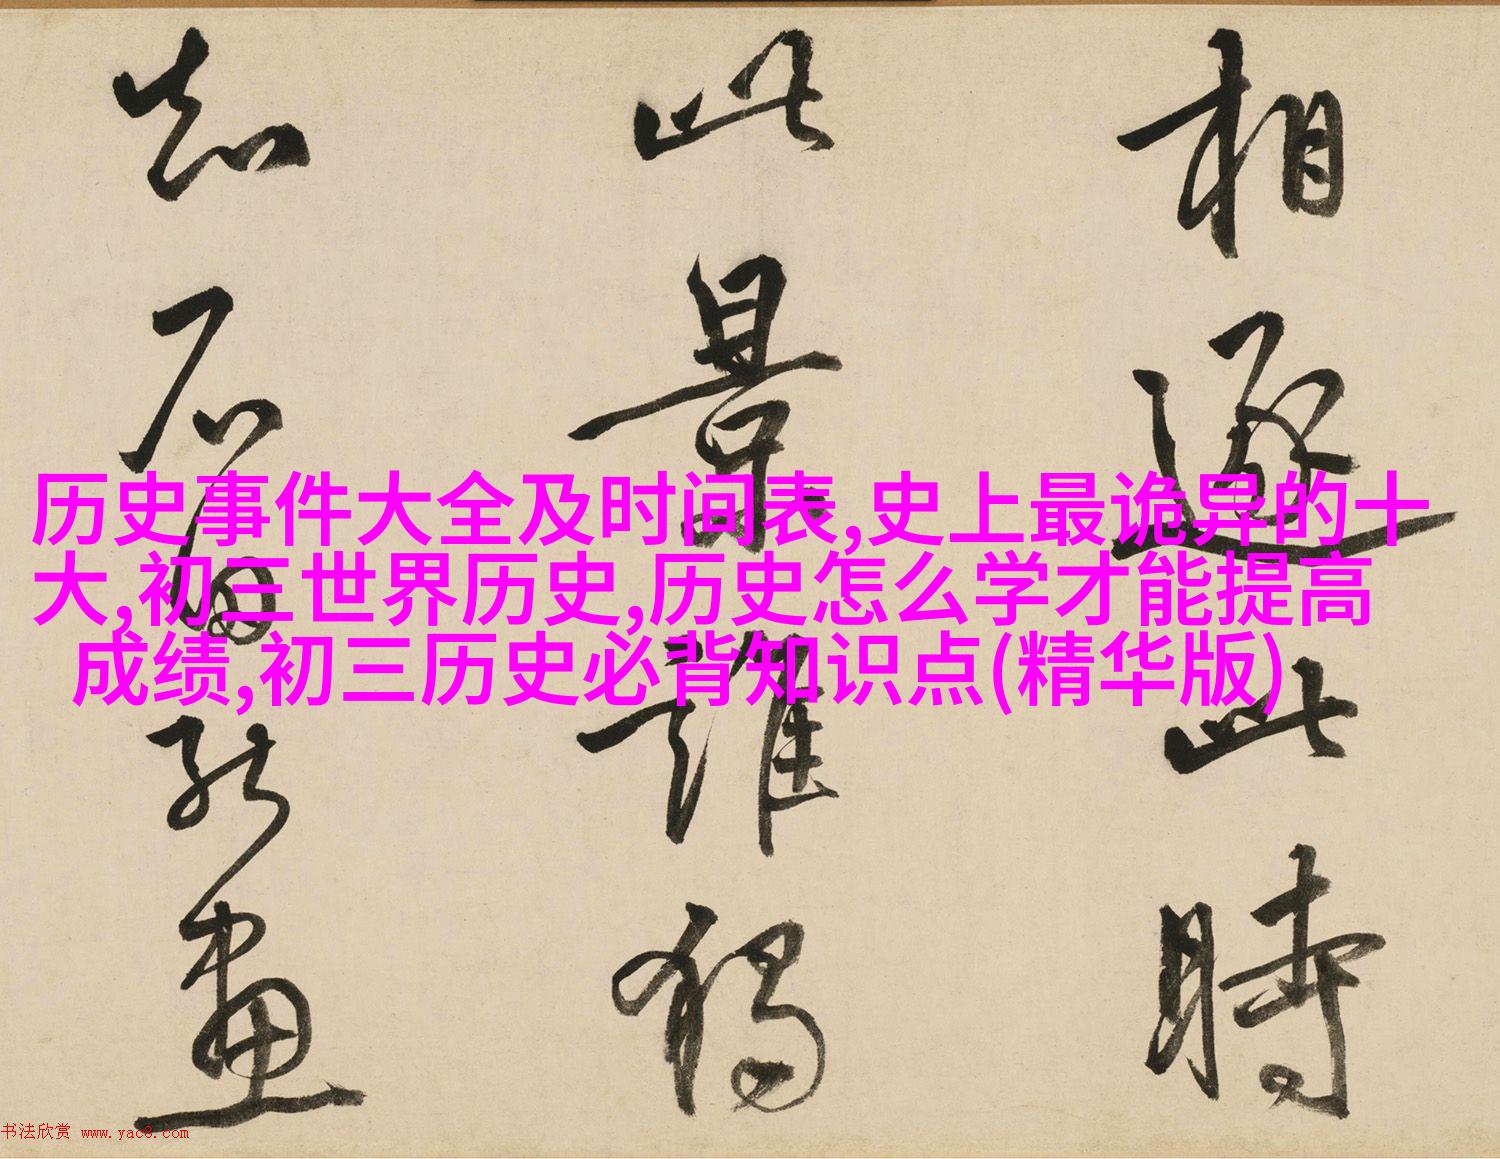 相逐此時
此景誰獨
知石能畫
历史事件大全及时间表,史上最诡异的十
大,初三世界历史,历史怎么学才能提高
成绩,初三历史必背知识点(精华版)
书法欣赏 www.yac8.com